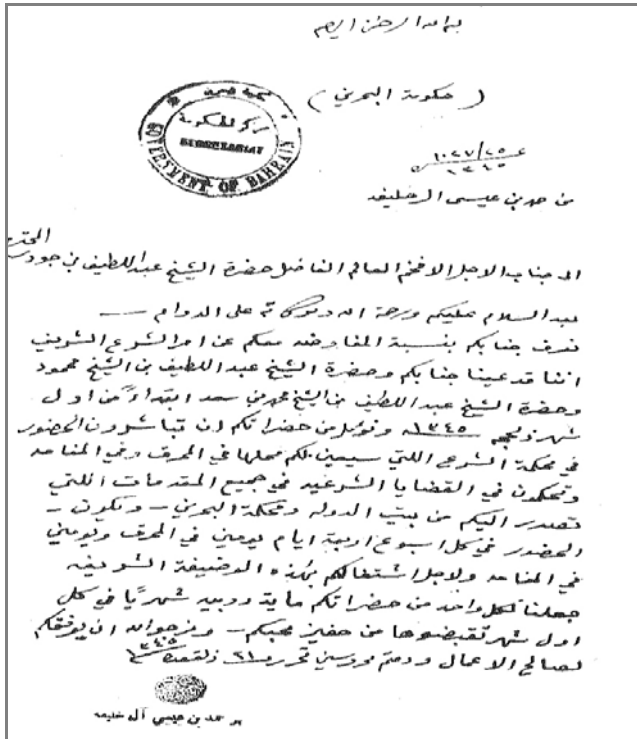 بسم الله الرحمن الرحيم
حكومة البحرين
مركز الحكومة
SECRETARIAT
GOVERNMENT OF BAHRAIN
( حكومة البحرين )
١٣٤٥
من حمد بن عيسى ال خليفه
الى جناب الاجل الافخم العالم الفاضل حضرة الشيخ عبد اللطيف بن جودر المحترم
بعد السلام عليكم ورحمة الله وبركاته على الدوام
نعرف جنابكم بنسبة المفاوضه معكم عن امر الشرع الشريف
اننا قد عينا جنابكم وحضرة الشيخ عبد اللطيف بن الشيخ محمود
وحضرة الشيخ عبد اللطيف بن الشيخ محمد بن سعد ابتداءً من اول
شهر ذي الحجه ١٣٤٥ ونؤمل من حضراتكم ان تباشرون الحضور
في محكمة الشرع اللتي سيعين لكم محلها في المحرق وفي المنامه
وتحكون في القضايا الشرعيه في جميع المقدمات اللتي
تصدر اليكم من بيت الدوله ومحكمة البحرين – وتكون –
الحضور في كل اسبوع اربعة ايام يومين في المحرق ويومين
في المنامه ولاجل اشتغالكم بهذه الوضيفة الشريفه
جعلنا لكل واحد من حضراتكم ماية روبيه شهريًا في كل
اول شهر تقبضوها من حفيز محبكم – ونرجو الله ان يوفقكم
لصالح الاعمال ودمتم محروسين تحرر ٢١ ذلقعده ١٣٤٥
حمد بن عيسى آل خليفه